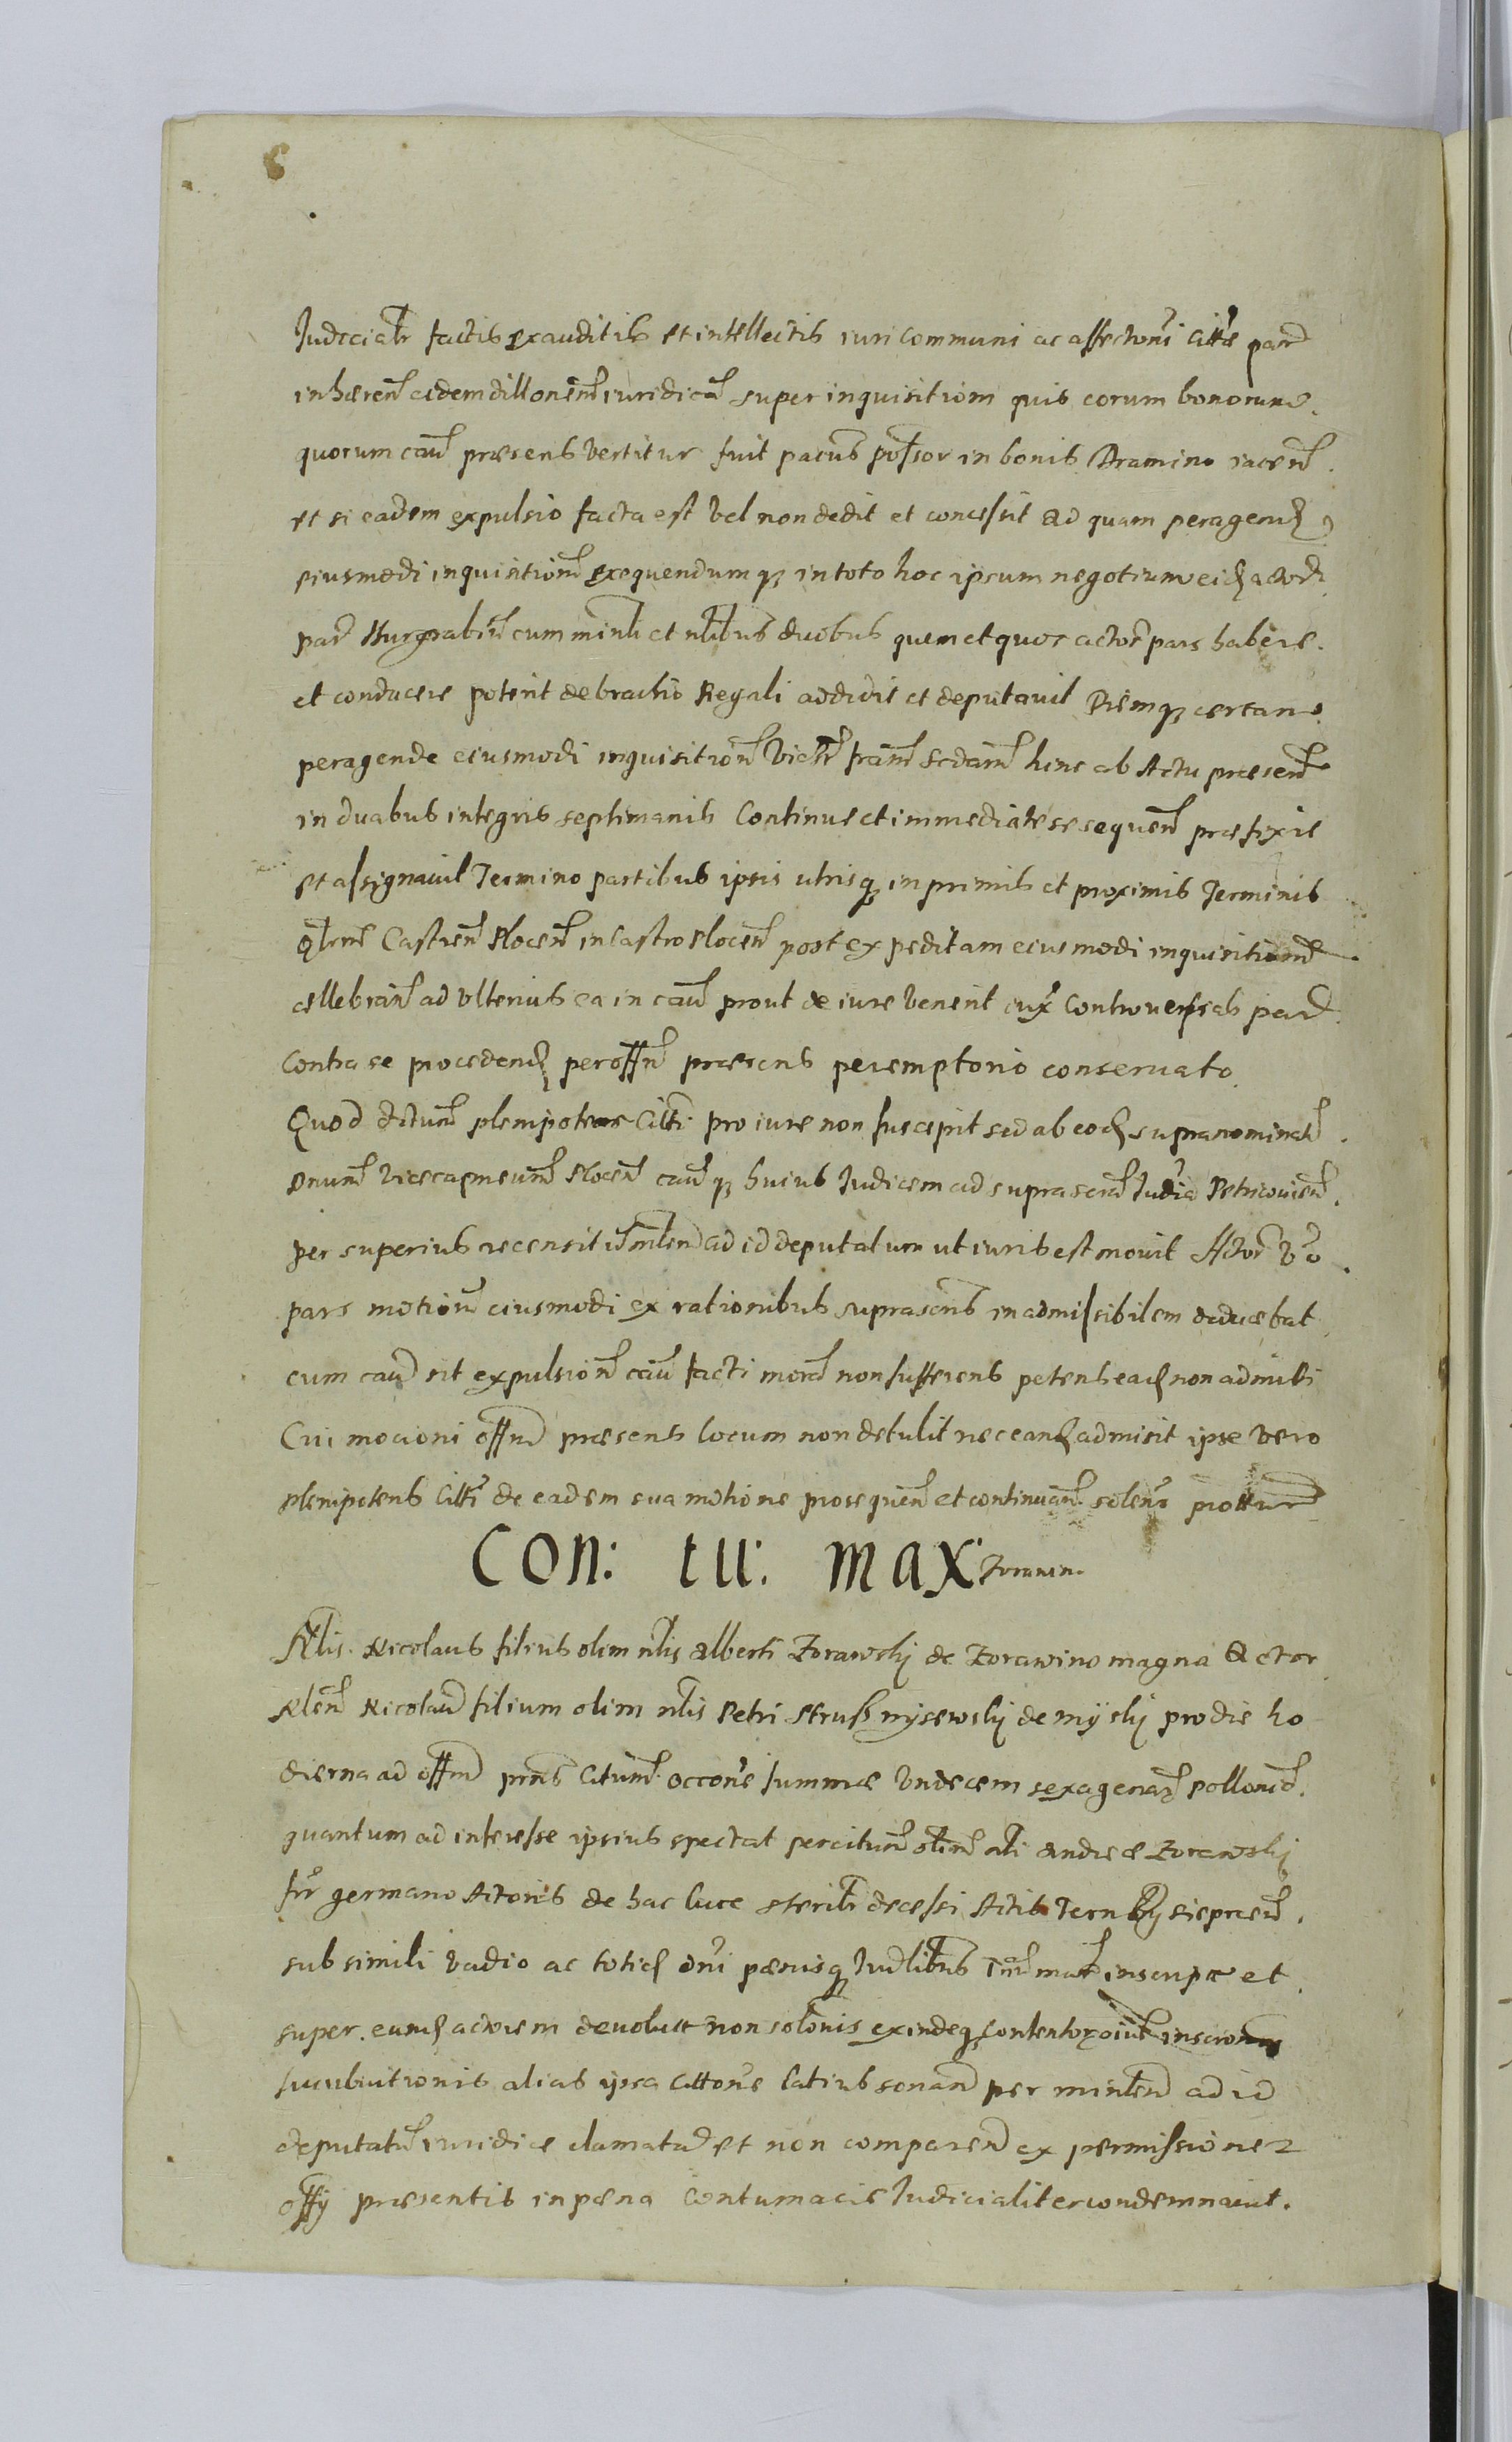 Judicialr factis exauditis et intellectis iuri communi ac affectoni cittae pard
inhaeren eidem dillonem iuridicam super inquisitiom quis eorum bonorum
quorum caun praesens vertitur fuit pacus possor in bonis Dramino iacen
et si eadem expulsio facta est vel non dedit et concessit Ad quam peragend
eiusmodi inquisitionem exequendumq in toto hoc ipsum negotium eid actori
pard Burgrabium cum minli et nlibus duobus quem et quos actor pars habere
et conducere poterit de brachio Regali addidit et deputavit Diemq certam
peragende eiusmodi inquisition videlt fram secdam hinc ab Actu praesen
in duabus integris septimanis Continue et immediate se sequen praefixit
et assignavit Termino partibus ipsis utrisq in primis et proximis Terminis
qlrum Castren Plocen in Castro Plocen post expeditam eiusmodi inquisitionem
cellebran ad ulterius ea in caun prout de iure venerit aux Controversas pard
Contra se procedend per offm praesens peremptorio conservato
Quod dictum plenipotens Citti pro iure non suscepit sed ab eod supranominat
Dnum Vicecapneum Plocen caunq huius Judicem ad suprascra Judia Petricovien
per superius recensitum mlem ad id deputatum ut iuris est movit Actor vo
pars motionem eiusmodi ex rationibus suprascris inadmissibilem deducebat
cum caud sit expulsionem caun facti moram non sufferens petens ead non admitti
Cui mocioni offm praesens locum non detulit nec eand admisit ipse vero
plenipotens Citti de eadem sua motione prosequen et continuan solenr prottur
Con: in: Max Zorawin.
Nlis Nicolaus filius olim nlis Alberti Zorawskij de Zorawino magna Actor
Nlem Nicolaum filium olim nlis Petri Strus mysewskij de myskij pro die ho
dierna ad offm prns Citum occone summae Undecem sexagenar pollonid
quantum ad interesse ipsius spectat per citum olim nli Andreae Zorawskij
fri germano Actoris de hac luce sterilr decessi Actis Terrbq sieprcen
sub simili vadio ac totid dni paenisq Judlibus Inmat inscriptae et
super eund actorem devolutae non solonis exindeq contentor oium inscronis
succubiutionis alias ipsa Cittone latius sonan per minlem ad id
deputatum iuridice clamatum et non comparen ex permissione
offij praesentis in paena Contumaciae Judicialiter condemnavit.